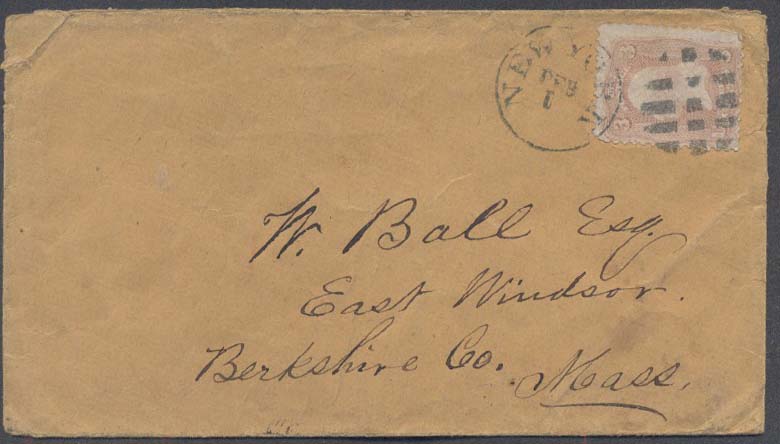 NEW YORK
FEB
1
3 3
W. Ball Esq.
East Windsor.
Berkshire Co. Mass.